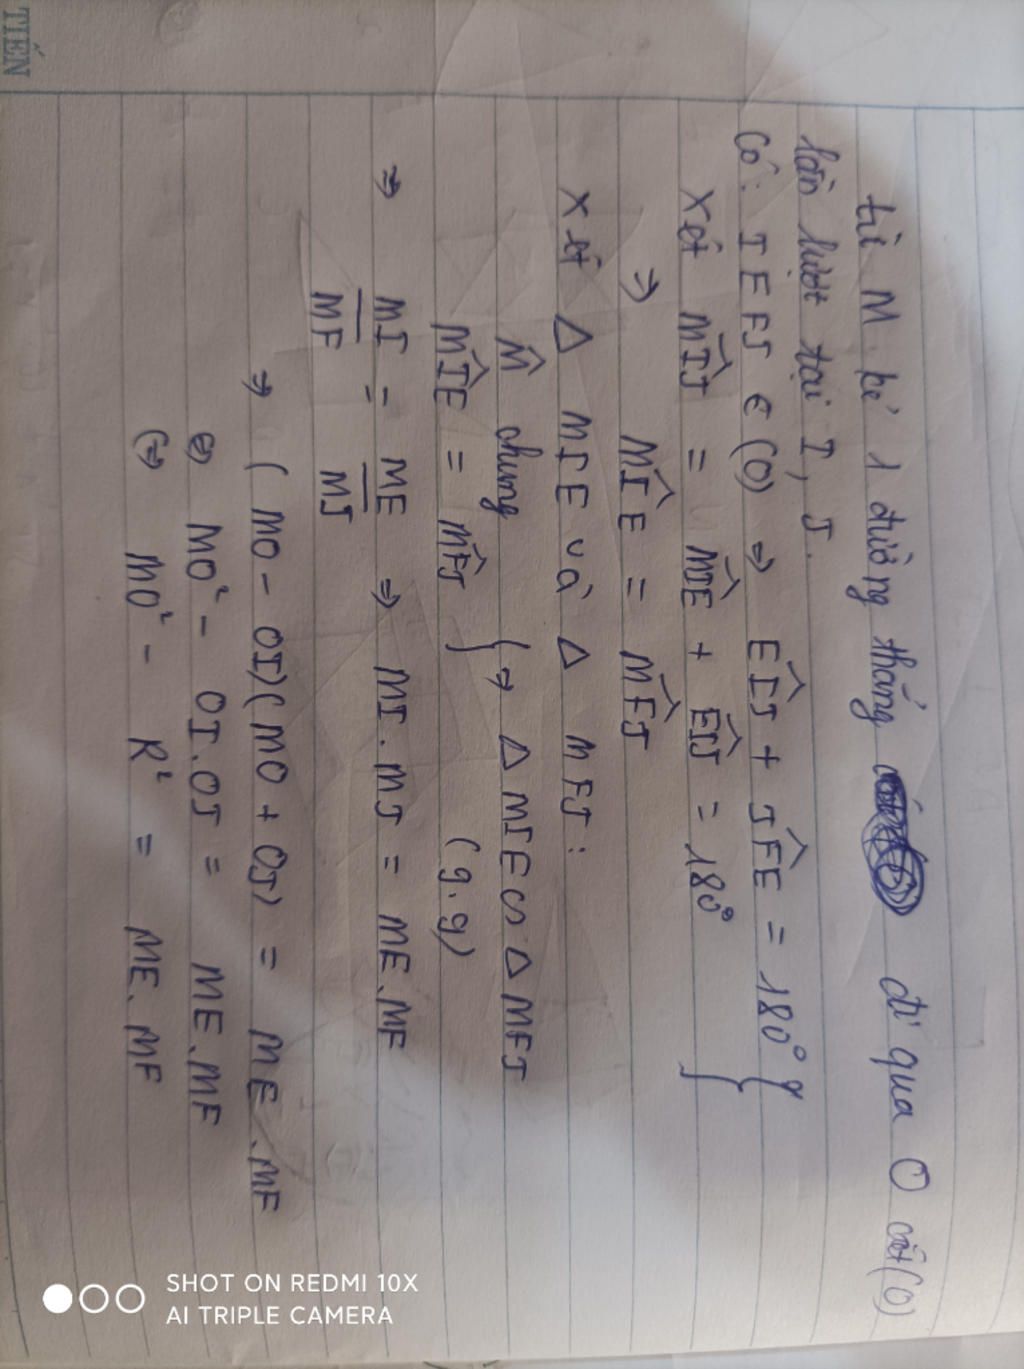 từ M kẻ 1 đường thẳng đi qua O cắt (O)
lần lượt tại I, J.
Có: IEFJ ∈ (O) ⇒ EÎJ + JF̂E = 180° }
Xét MÎJ = MÎE + EÎJ = 180° }
⇒ MÎE = MF̂J
Xét Δ MIE và Δ MFJ:
M̂ chung } ⇒ Δ MIE ∽ Δ MFJ
MÎE = MF̂J } (g.g)
⇒ MI/MF = ME/MJ ⇒ MI.MJ = ME.MF
⇒ (MO - OI)(MO + OJ) = ME.MF
⇔ MO² - OI.OJ = ME.MF
⇔ MO² - R² = ME.MF
TIẾN
SHOT ON REDMI 10X
AI TRIPLE CAMERA